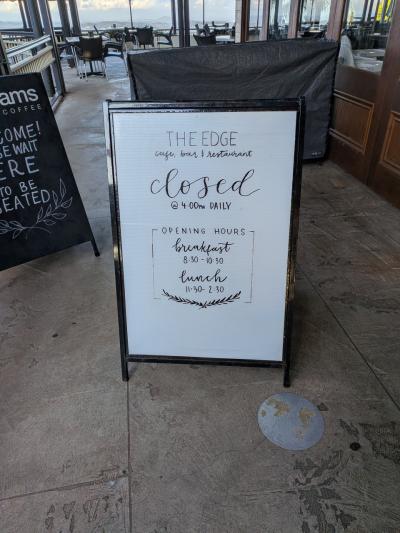 ams
COFFEE
OME!
E WAIT
ERE
TO BE
SEATED
THE EDGE
cafe, bar & restaurant
closed
@ 4:00pm DAILY
OPENING HOURS
breakfast
8:30 - 10:30
lunch
11:30 - 2:30